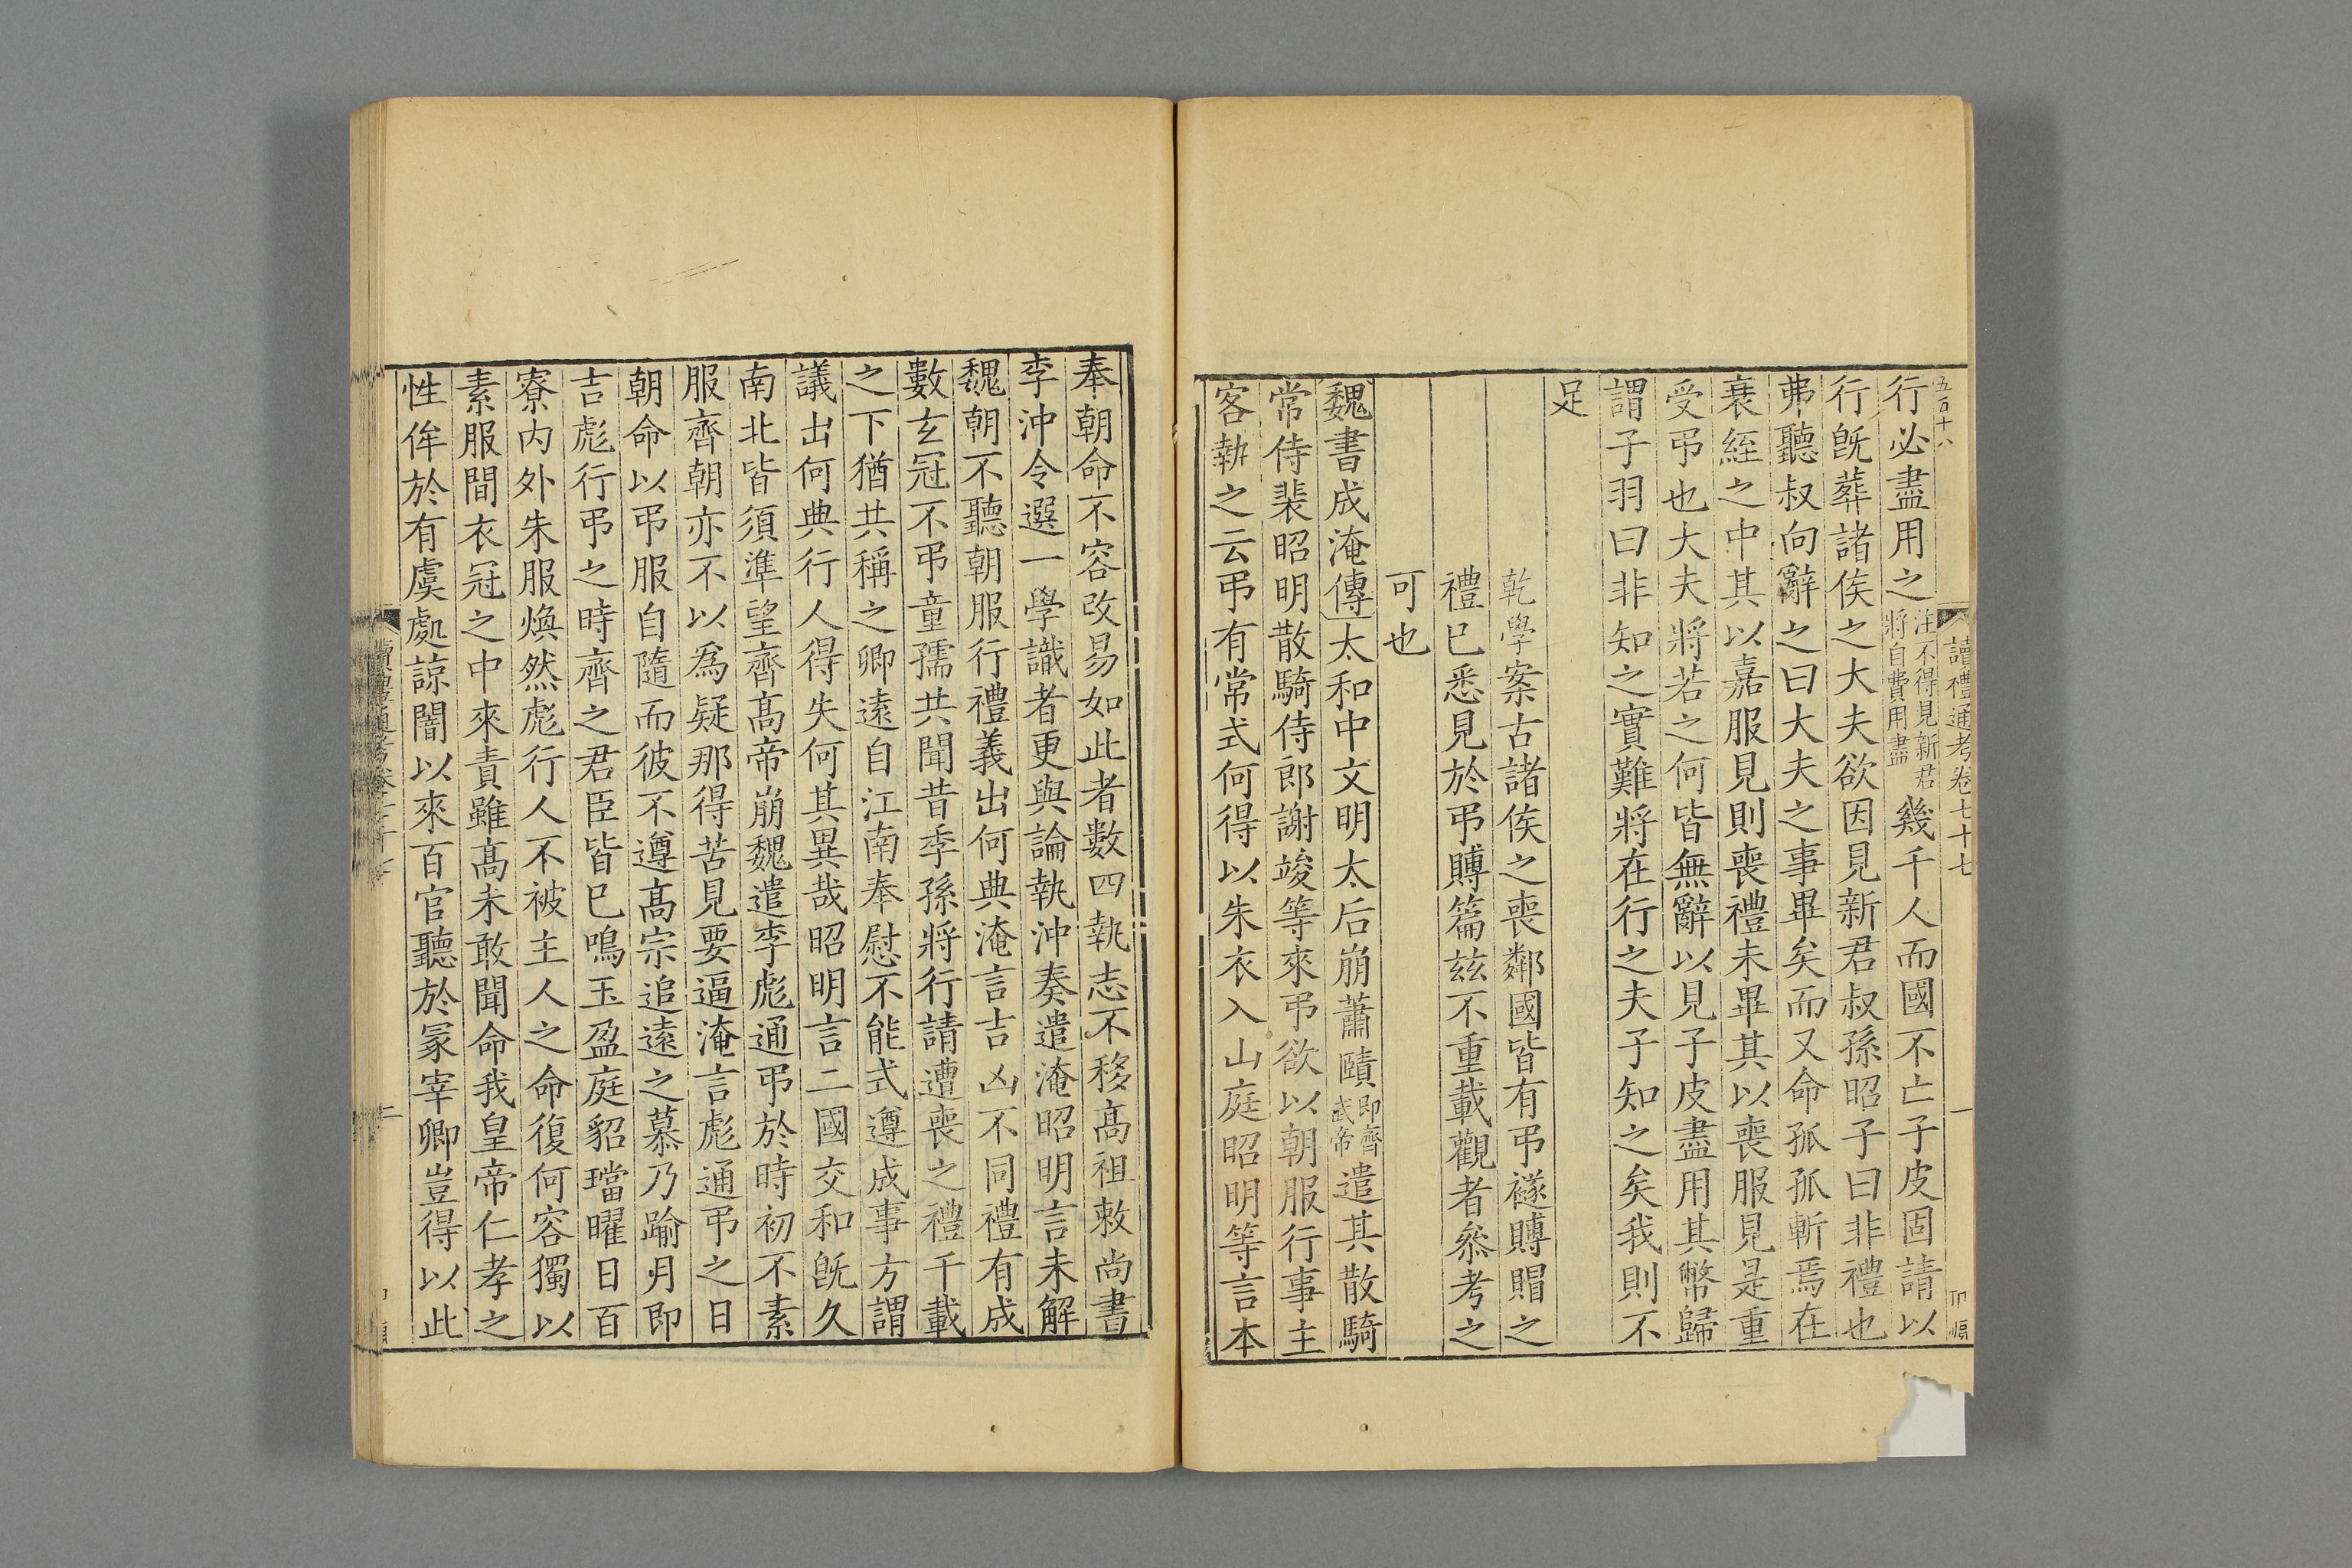 五百十八
讀禮通考卷七十七
一
行必盡用之注不得見新君將自費用盡幾千人而國不亡子皮固請以
行旣葬諸侯之大夫欲因見新君叔孫昭子曰非禮也
弗聽叔向辭之曰大夫之事畢矣而又命孤孤斬焉在
衰絰之中其以嘉服見則喪禮未畢其以喪服見是重
受弔也大夫將若之何皆無辭以見子皮盡用其幣歸
謂子羽曰非知之實難將在行之夫子知之矣我則不
足
乾學案古諸侯之喪鄰國皆有弔襚賻賵之
禮已悉見於弔賻篇玆不重載觀者叅考之
可也
魏書成淹傳太和中文明太后崩蕭賾即齊武帝遣其散騎
常侍裴昭明散騎侍郎謝竣等來弔欲以朝服行事主
客執之云弔有常式何得以朱衣入山庭昭明等言本
奉朝命不容改易如此者數四執志不移髙祖敕尚書
李沖令選一學識者更與論執沖奏遣淹昭明言未解
魏朝不聽朝服行禮義出何典淹言吉凶不同禮有成
數玄冠不弔童孺共聞昔季孫將行請遭喪之禮千載
之下猶共稱之卿遠自江南奉慰不能式遵成事方謂
議出何典行人得失何其異哉昭明言二國交和旣久
南北皆須準望齊髙帝崩魏遣李彪通弔於時初不素
服齊朝亦不以爲疑那得苦見要逼淹言彪通弔之日
朝命以弔服自隨而彼不遵髙宗追遠之慕乃踰月即
吉彪行弔之時齊之君臣皆已鳴玉盈庭貂璫曜日百
寮内外朱服煥然彪行人不被主人之命復何容獨以
素服間衣冠之中來責雖髙未敢聞命我皇帝仁孝之
性侔於有虞處諒闇以來百官聽於冡宰卿豈得以此
二